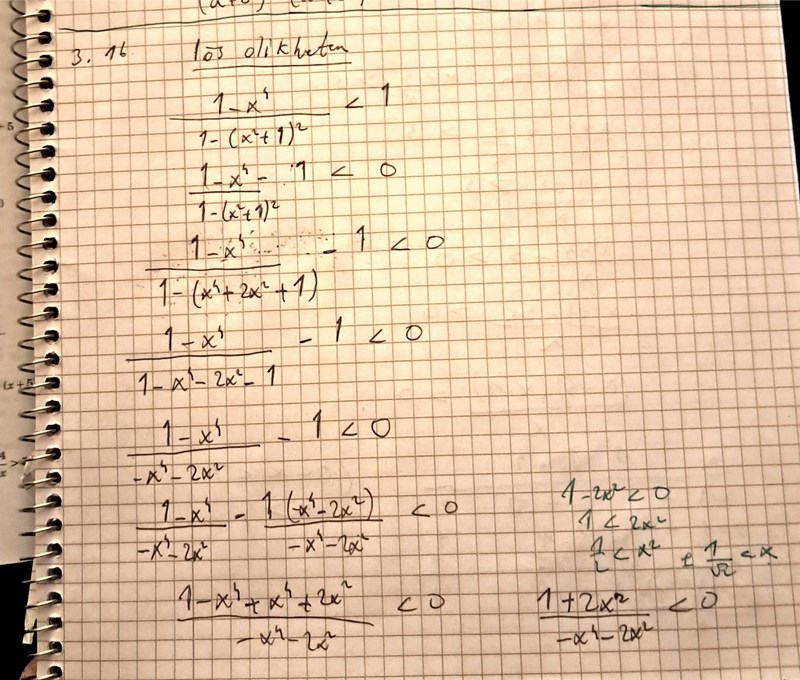 3. 16 lös olikheten
1-x⁴ / 1-(x²+1)² < 1
1-x⁴ / 1-(x²+1)² - 1 < 0
1-x⁴ / 1-(x⁴+2x²+1) - 1 < 0
1-x⁴ / 1-x⁴-2x²-1 - 1 < 0
1-x⁴ / -x⁴-2x² - 1 < 0
1-x⁴ / -x⁴-2x² - 1(-x⁴-2x²) / -x⁴-2x² < 0
1-2x² < 0
1 < 2x²
1/2 < x² ± 1/√2 < x
1-x⁴+x⁴+2x² / -x⁴-2x² < 0
1+2x² / -x⁴-2x² < 0